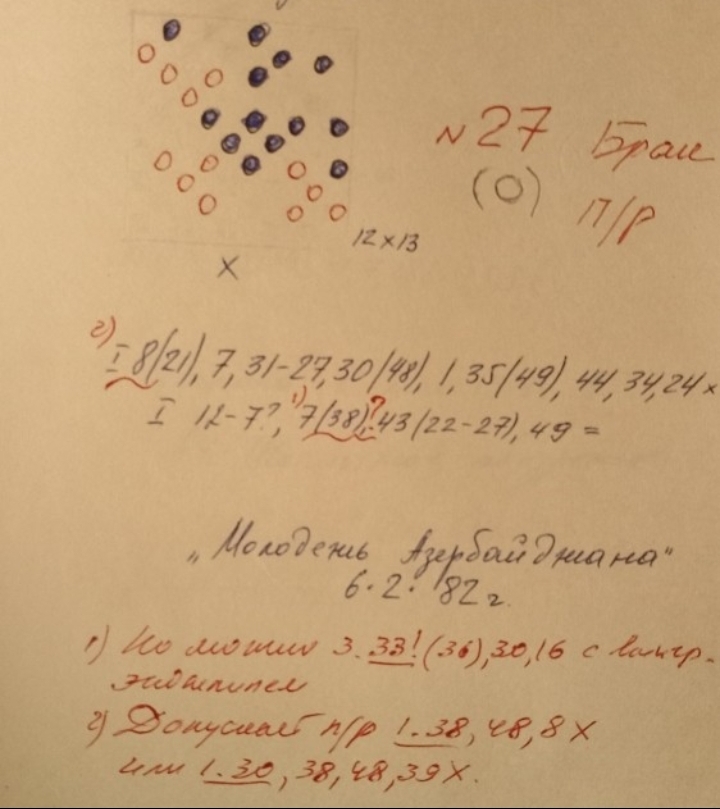 №27 Брак
(0) П/р
12x13
X
2)
I 8(21), 7, 31-27, 30(48), 1, 35(49), 44, 34, 24x
I 12-7?, 1) 7(38)?, 43(22-27), 49=
„Молодежь Азербайджана"
6.2. 82 г.
1) Но можно 3. 33! (36), 30, 16 с выигр.
эндшпилем
2) Допускает п/р 1. 38, 48, 8X
или 1. 30, 38, 48, 39X.